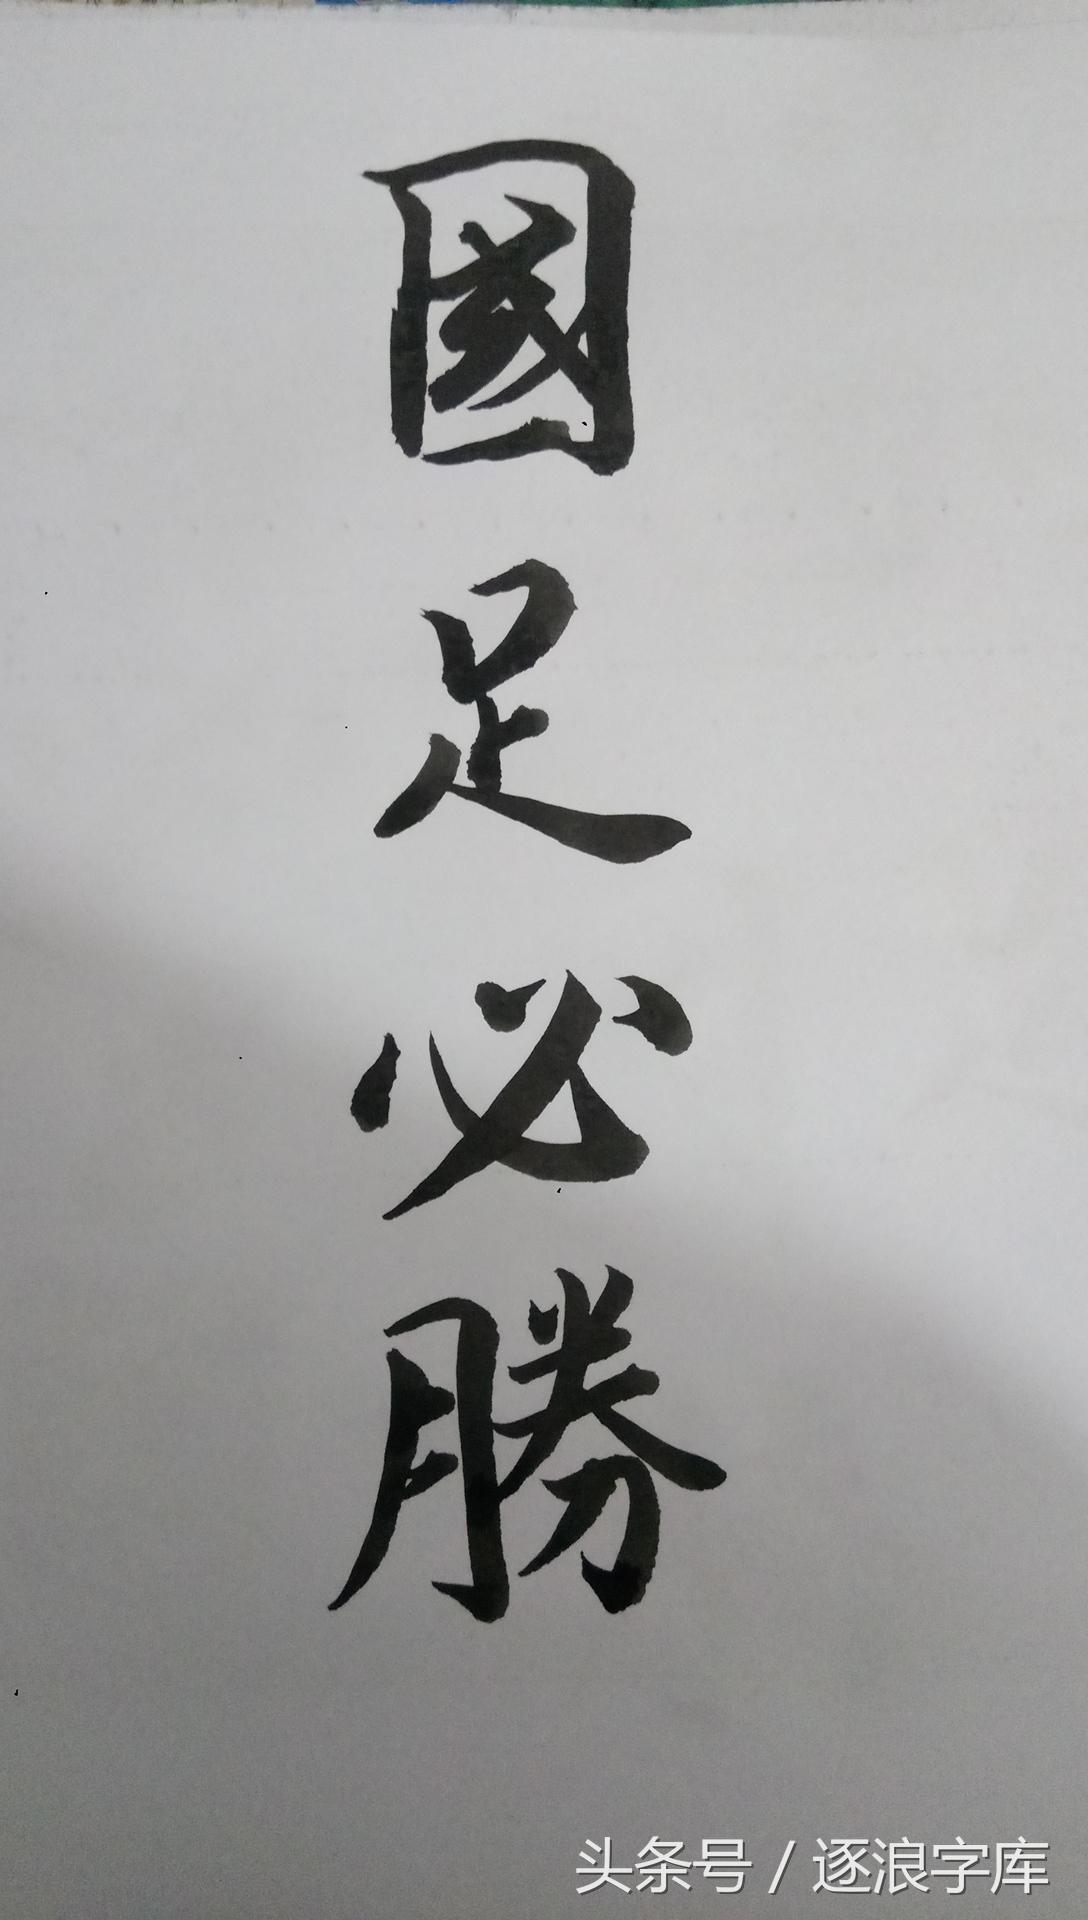 國足必勝
头条号 / 逐浪字库